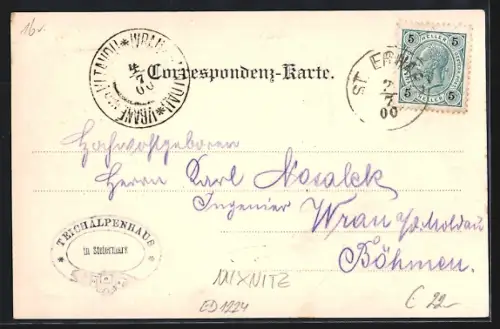 16.-
5 HELLER 5
5 5
VRANE
4/7
00
Correspondenz-Karte.
ST. ERHARD
2/7
00
Hochwohlgeboren
Herrn Karl Nosalek
Ingenieur
Wran a/d. Moldau
Böhmen.
TEICHALPENHAUS
in Steiermark
MIXNITZ
ED1224
€ 22.-